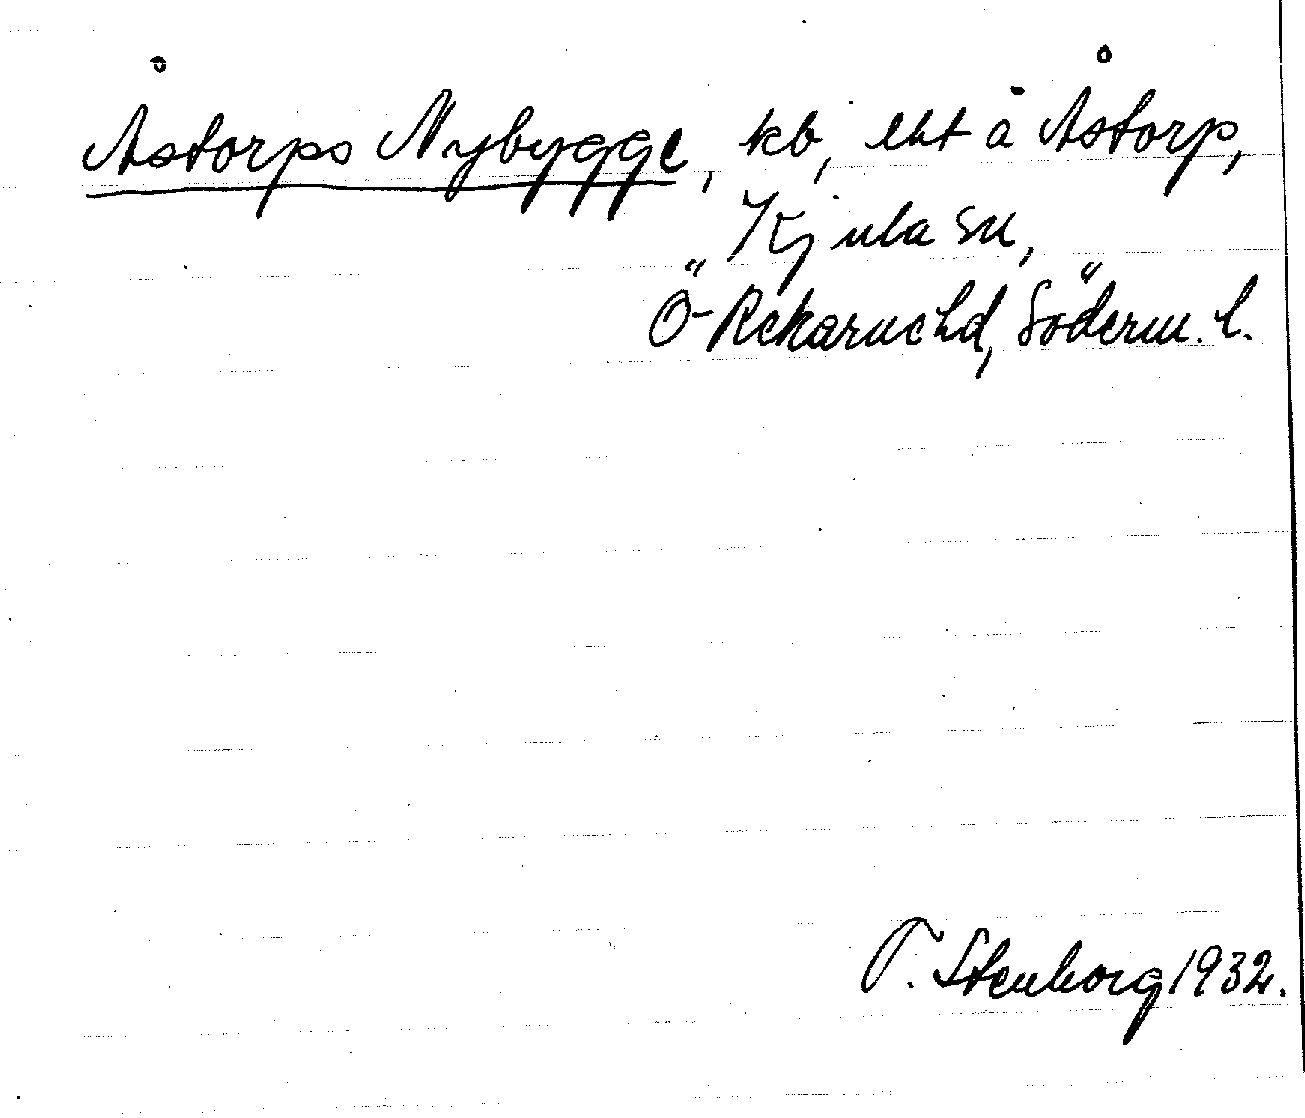 Åstorps Nybygge, kb, lht å Åstorp,
Kjula sn,
Ö-Rekarne hd, Söderm. l.
T. Stenborg 1932.